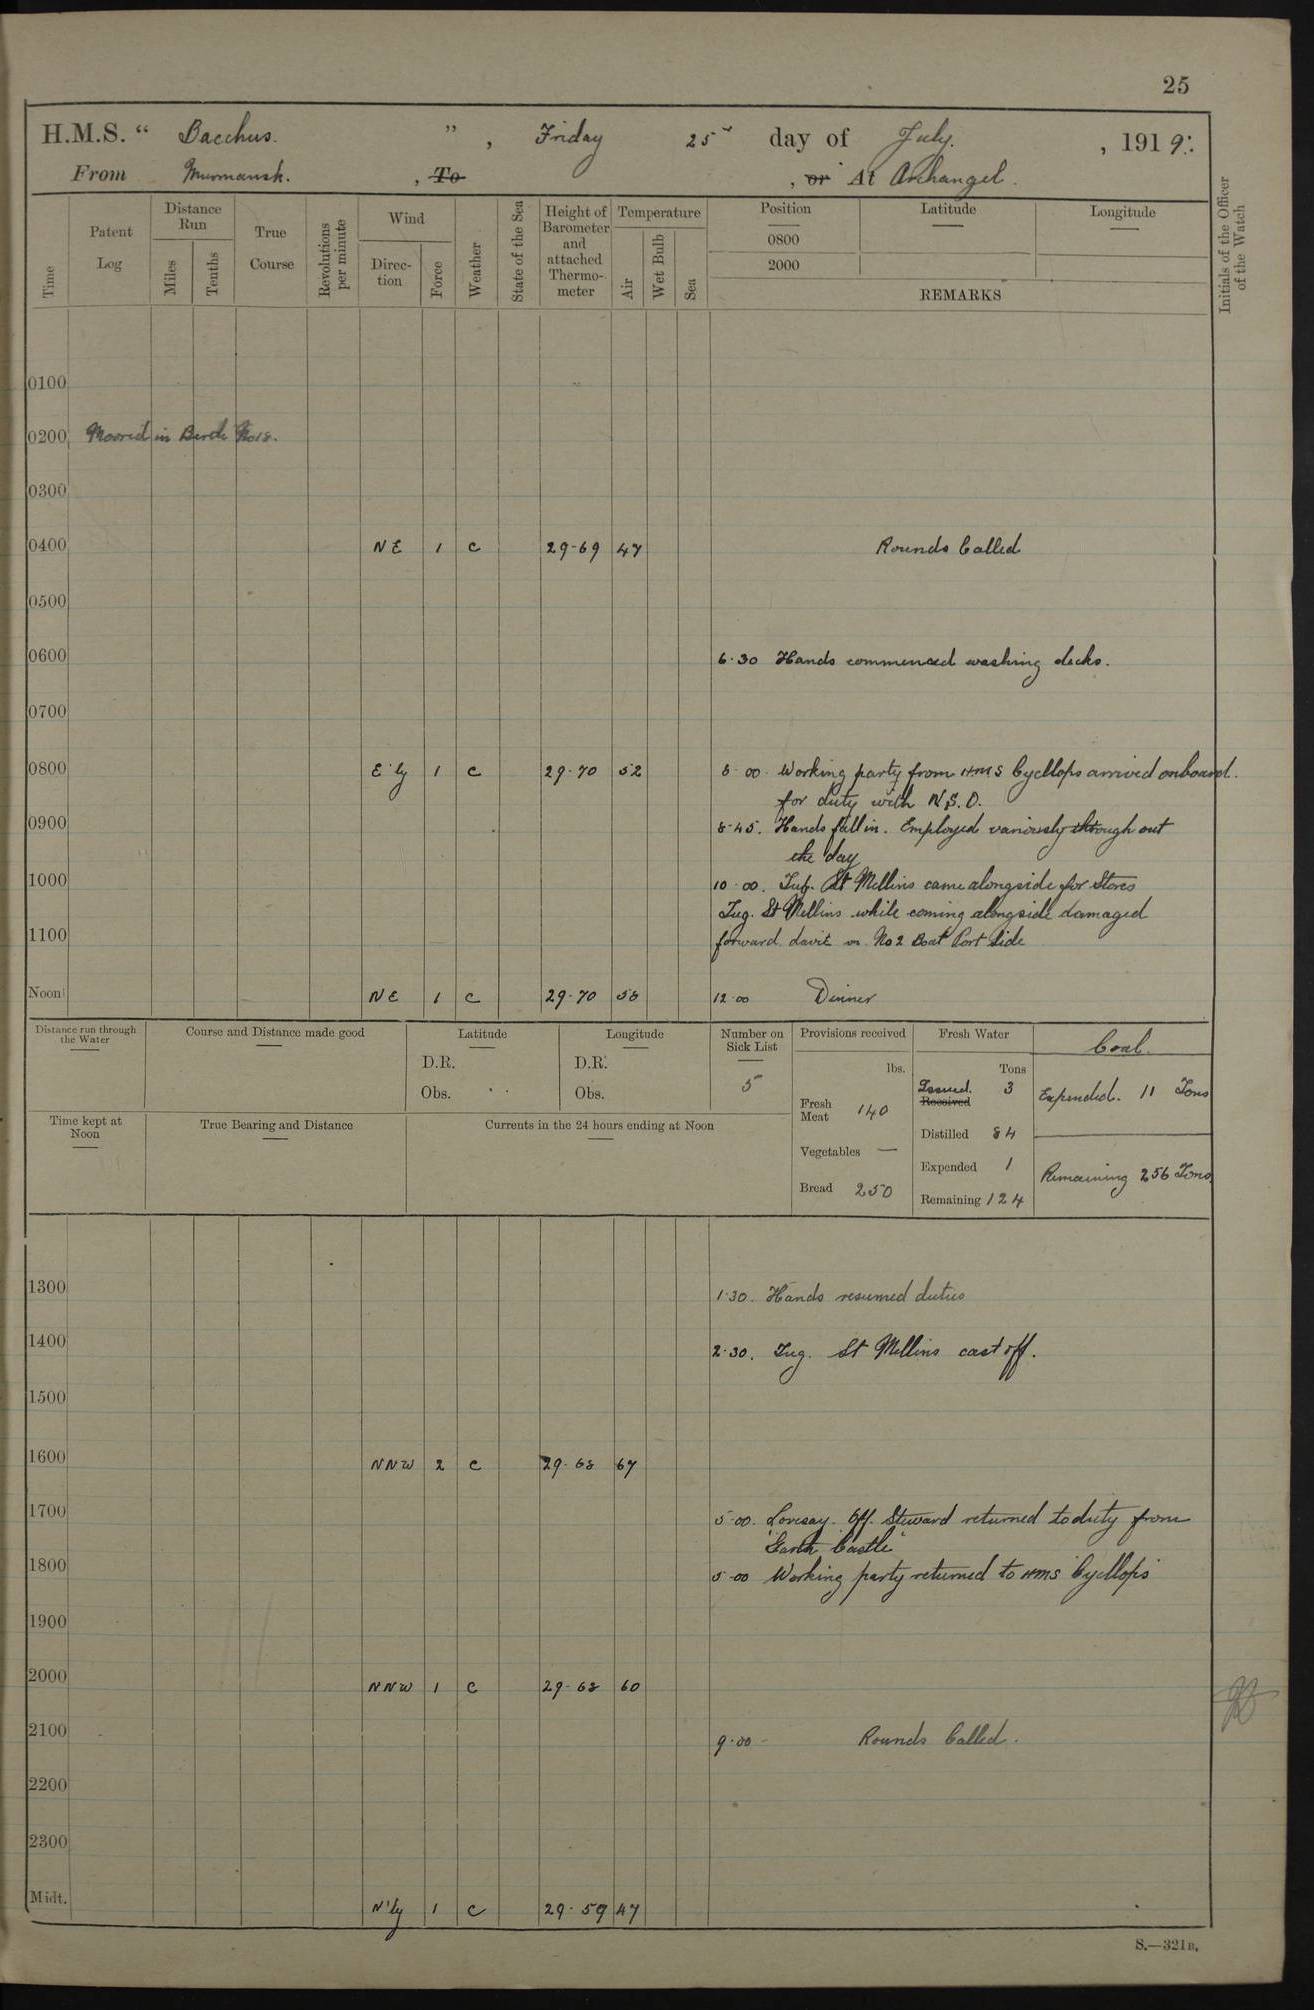 25
H.M.S. “ Bacchus. ” , Friday 25 day of July. , 1919.
From Murmansk. , To , or At Archangel.
Time Patent Log Distance Run Miles Tenths True Course Revolutions per minute Wind Direc-tion Force Weather State of the Sea Height of Barometer and attached Thermo-meter Temperature Air Wet Bulb Sea Position Latitude Longitude Initials of the Officer of the Watch
0800
2000
REMARKS
0100
0200 Moored in Berth No 18.
0300
0400 NE 1 c 29-69 47 Rounds Called
0500
0600 6.30 Hands commenced washing decks.
0700
0800 E'ly 1 c 29-70 52 8-00. Working party from HMS Cycllops arrived onboard.
for duty with N.S.O.
0900 8-45. Hands fall in. Employed variously through out
the day
1000 10-00. Tug. St Mellins came alongside for Stores
Tug. St Mellins while coming alongside damaged
1100 forward davit on No 2 Boat Port Side
Noon NE 1 c 29-70 58 12.00 Dinner
Distance run through the Water Course and Distance made good Latitude Longitude Number on Sick List Provisions received Fresh Water Coal.
D.R. D.R. lbs. Tons
Obs. Obs. 5 Issued. 3 Expended. 11 Tons
Received
Fresh Meat 140
Time kept at Noon True Bearing and Distance Currents in the 24 hours ending at Noon Distilled 84
Vegetables —
Expended 1 Remaining 256 Tons
Bread 250 Remaining 124
1300 1.30. Hands resumed duties
1400 2.30. Tug. St Mellins cast off.
1500
1600 NNW 2 c 29-68 67
1700 5-00. Lovesay. Off. Steward returned to duty from
"Garth Castle"
1800 5-00 Working party returned to HMS Cycllops
1900
2000 NNW 1 c 29-68 60
2100 9.00 - Rounds Called.
2200
2300
Midt. N'ly 1 c 29-59 47
S.—321B.